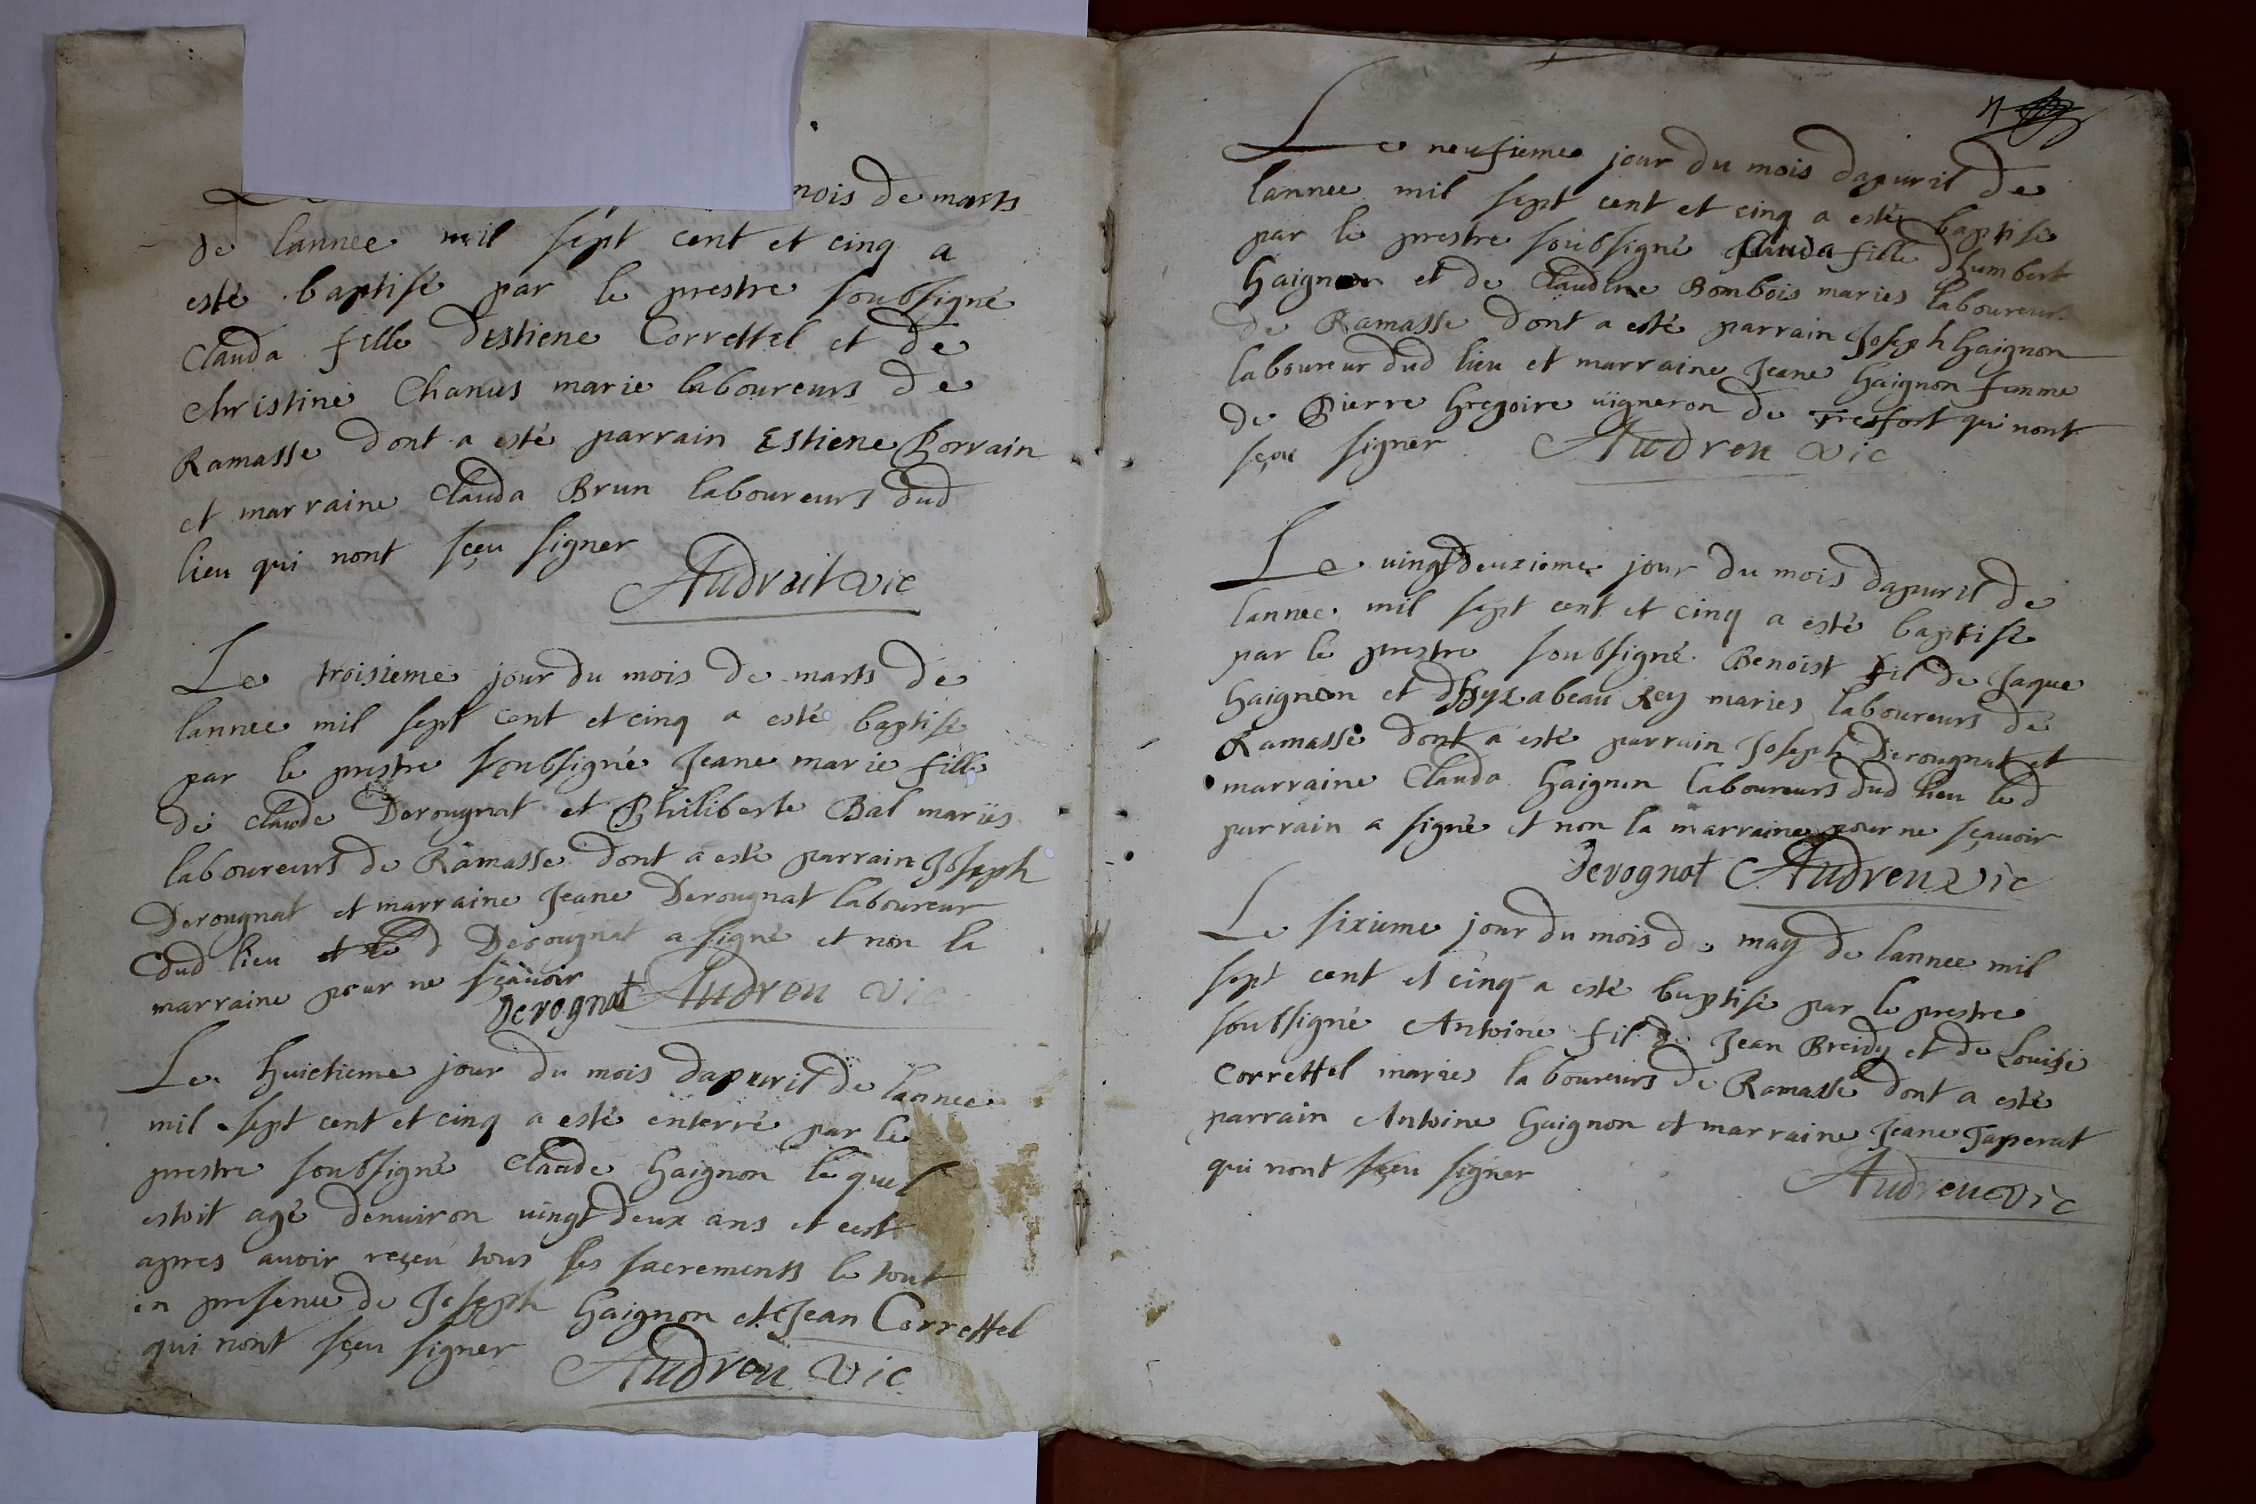 Le nois de marts
de lannee mil sept cent et cinq a
esté baptisé par le prestre soubsigné
Clauda fille destiene Correttel et de
Christine Chanus marie laboureurs de
Ramasse dont a esté parrain Estiene Borrain
et marraine Clauda Brun laboureurs dud
lieu qui nont sçeu signer
Vic
Le troisieme jour du mois de marts de
lannee mil sept cent et cinq a esté baptisé
par le prestre soubsigné Jeane marie fille
de claude Derougnat et Philiberte Bal mariés
laboureurs de Ramasse dont a esté parrain Joseph
Derougnat et marraine Jeane Derougnat laboureur
dud lieu et le d Derougnat a signé et non la
marraine pour ne sçavoir
Derognat Audreu Vic
Le huictieme jour du mois dapvril de lannee
mil sept cent et cinq a esté enterré par le
prestre soubsigné Claude Gaignon le quel
estoit agé denuiron vingt deux ans et cest
apres auoir reçeu tous ses sacrements le tout
en presence de Joseph Gaignon et Jean Correttel
qui nont sçeu signer
Audreu Vic
Le neufieme jour du mois dapuril de
lannee mil sept cent et cinq a esté baptisé
par le prestre soubsigné Clauda fille dhumbert
Gaignon et de Claudine Bombois maries laboureurs
de Ramasse dont a esté parrain Joseph Gaignon
laboureur dud lieu et marraine Jeane Gaignon femme
de Pierre Gregoire uigneron de Treffort qui nont
sçeu signer Audreu Vic
Le uingtdeuxieme jour du mois dapuril de
lannee mil sept cent et cinq a esté baptisé
par le prestre soubsigné Benoist fil de Jaque
Gaignon et dysabeau Rey maries laboureurs de
Ramasse dont a esté parrain Joseph Derougnat et
marraine Clauda Gaignon laboureurs dud lieu led
parrain a signé et non la marraine pour ne sçauoir
Derognat Audreu Vic
Le sixieme jour du mois de may de lannee mil
sept cent et cinq a esté baptisé par le prestre
soubsigné Antoine fil de Jean Breidy et de Louise
Correttel maries laboureurs de Ramasse dont a esté
parrain Antoine Gaignon et marraine Jeane Taperat
qui nont sçeu signer
Audreu Vic